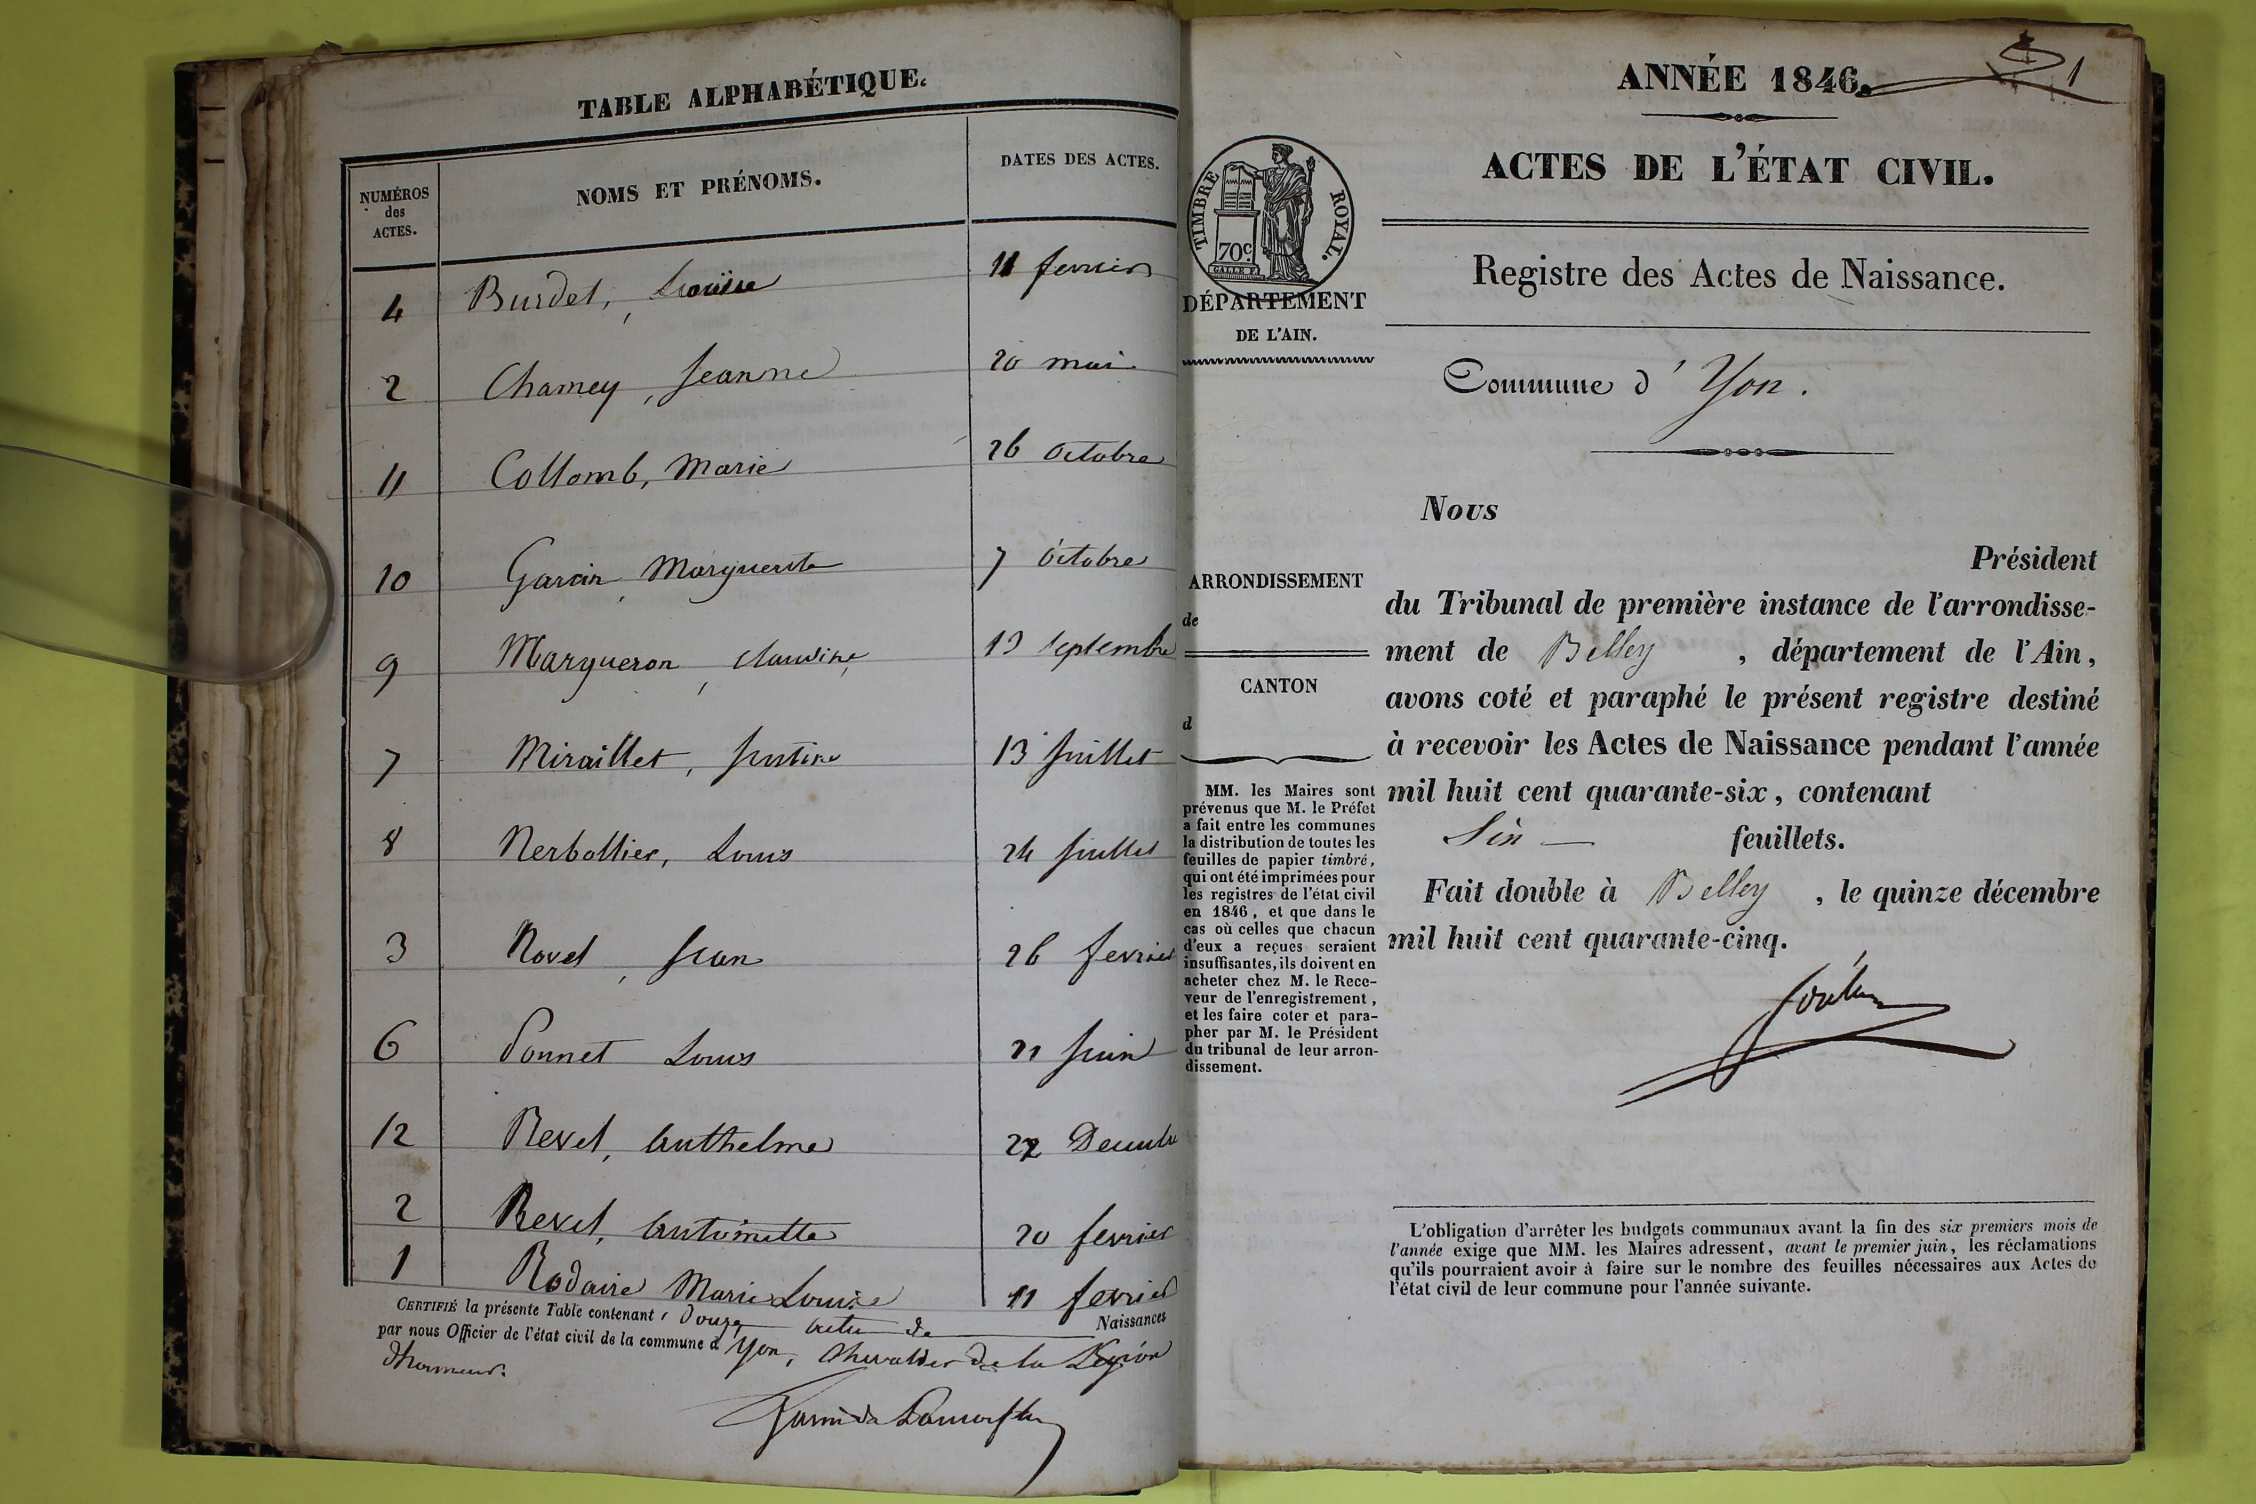 TABLE ALPHABÉTIQUE.
NUMÉROS
des
ACTES.
NOMS ET PRÉNOMS.
DATES DES ACTES.
4 Burdet, Louise 11 fevrier
2 Chamey, Jeanne 20 mai
11 Collomb, Marie 26 octobre
10 Garcin, Marguerite 7 octobre
9 Margueron, claudine 13 septembre
7 Miraillet, Justine 13 Juillet
8 Nerbollier, Louis 24 Juillet
3 Novel, Jean 26 fevrier
6 Ponnet Louis 21 Juin
12 Revel, Anthelme 22 Decembre
2 Revel, Antoinette 20 fevrier
1 Rodaire Marie Louise 11 fevrier
CERTIFIÉ la présente Table contenant, Douze actes de Naissances
par nous Officier de l'état civil de la commune d Yon, Chevalier de la Légion
d'honneur.
ANNÉE 1846.
1
ACTES DE L'ÉTAT CIVIL.
TIMBRE ROYAL.
70c.
DÉPARTEMENT
DE L'AIN.
Registre des Actes de Naissance.
Commune d'Yon.
ARRONDISSEMENT
de
CANTON
d
MM. les Maires sont
prévenus que M. le Préfet
a fait entre les communes
la distribution de toutes les
feuilles de papier timbré,
qui ont été imprimées pour
les registres de l'état civil
en 1846, et que dans le
cas où celles que chacun
d'eux a reçues seraient
insuffisantes, ils doivent en
acheter chez M. le Rece-
veur de l'enregistrement,
et les faire coter et para-
pher par M. le Président
du tribunal de leur arron-
dissement.
Nous
Président
du Tribunal de première instance de l'arrondisse-
ment de Belley, département de l'Ain,
avons coté et paraphé le présent registre destiné
à recevoir les Actes de Naissance pendant l'année
mil huit cent quarante-six, contenant
Six feuillets.
Fait double à Belley, le quinze décembre
mil huit cent quarante-cinq.
L'obligation d'arrêter les budgets communaux avant la fin des six premiers mois de
l'année exige que MM. les Maires adressent, avant le premier juin, les réclamations
qu'ils pourraient avoir à faire sur le nombre des feuilles nécessaires aux Actes de
l'état civil de leur commune pour l'année suivante.